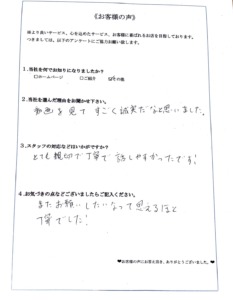 《お客様の声》
皆より良いサービス、心を込めたサービス、お客様に喜ばれるお店を目指しております。
つきましては、以下のアンケートにご協力お願い致します。
1.当社を何でお知りになりましたか?
□ホームページ □ご紹介 ☑その他
2.当社を選んだ理由をお聞かせ下さい。
動画を見て すごく誠実だなと思いました。
3.スタッフの対応などはいかがですか?
とても親切で丁寧で 話しやすかったです!
4.お気づきの点などございましたらご記入ください。
またお願いしたいなって思えるほど
丁寧でした!
♥お客様の声にお答え頂き、ありがとうございました。♥